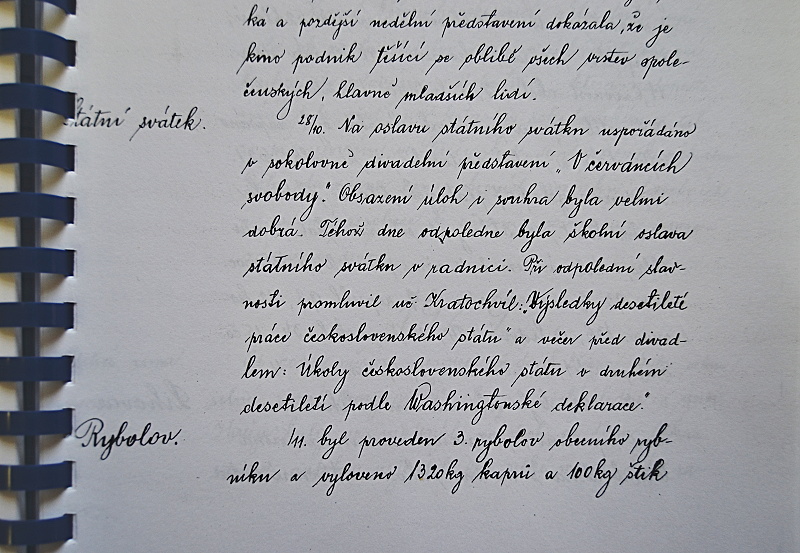 ká a pozdější nedělní představení dokázala, že je
kino podnik těšící se oblibě všech vrstev spole-
čenských, hlavně mladších lidí.
Státní svátek. 28/10. Na oslavu státního svátku uspořádáno
v sokolovně divadelní představení „V červáncích
svobody." Obsazení úloh i souhra byla velmi
dobrá. Téhož dne odpoledne byla školní oslava
státního svátku v radnici. Při odpolední slav-
nosti promluvil uč. Kratochvíl: „Výsledky desetileté
práce československého státu" a večer před divad-
lem: Úkoly československého státu v druhém
desetiletí podle Washingtonské deklarace."
Rybolov. 1/11. byl proveden 3. rybolov obecního ryb-
níku a vyloveno 1320kg kaprů a 100kg štik